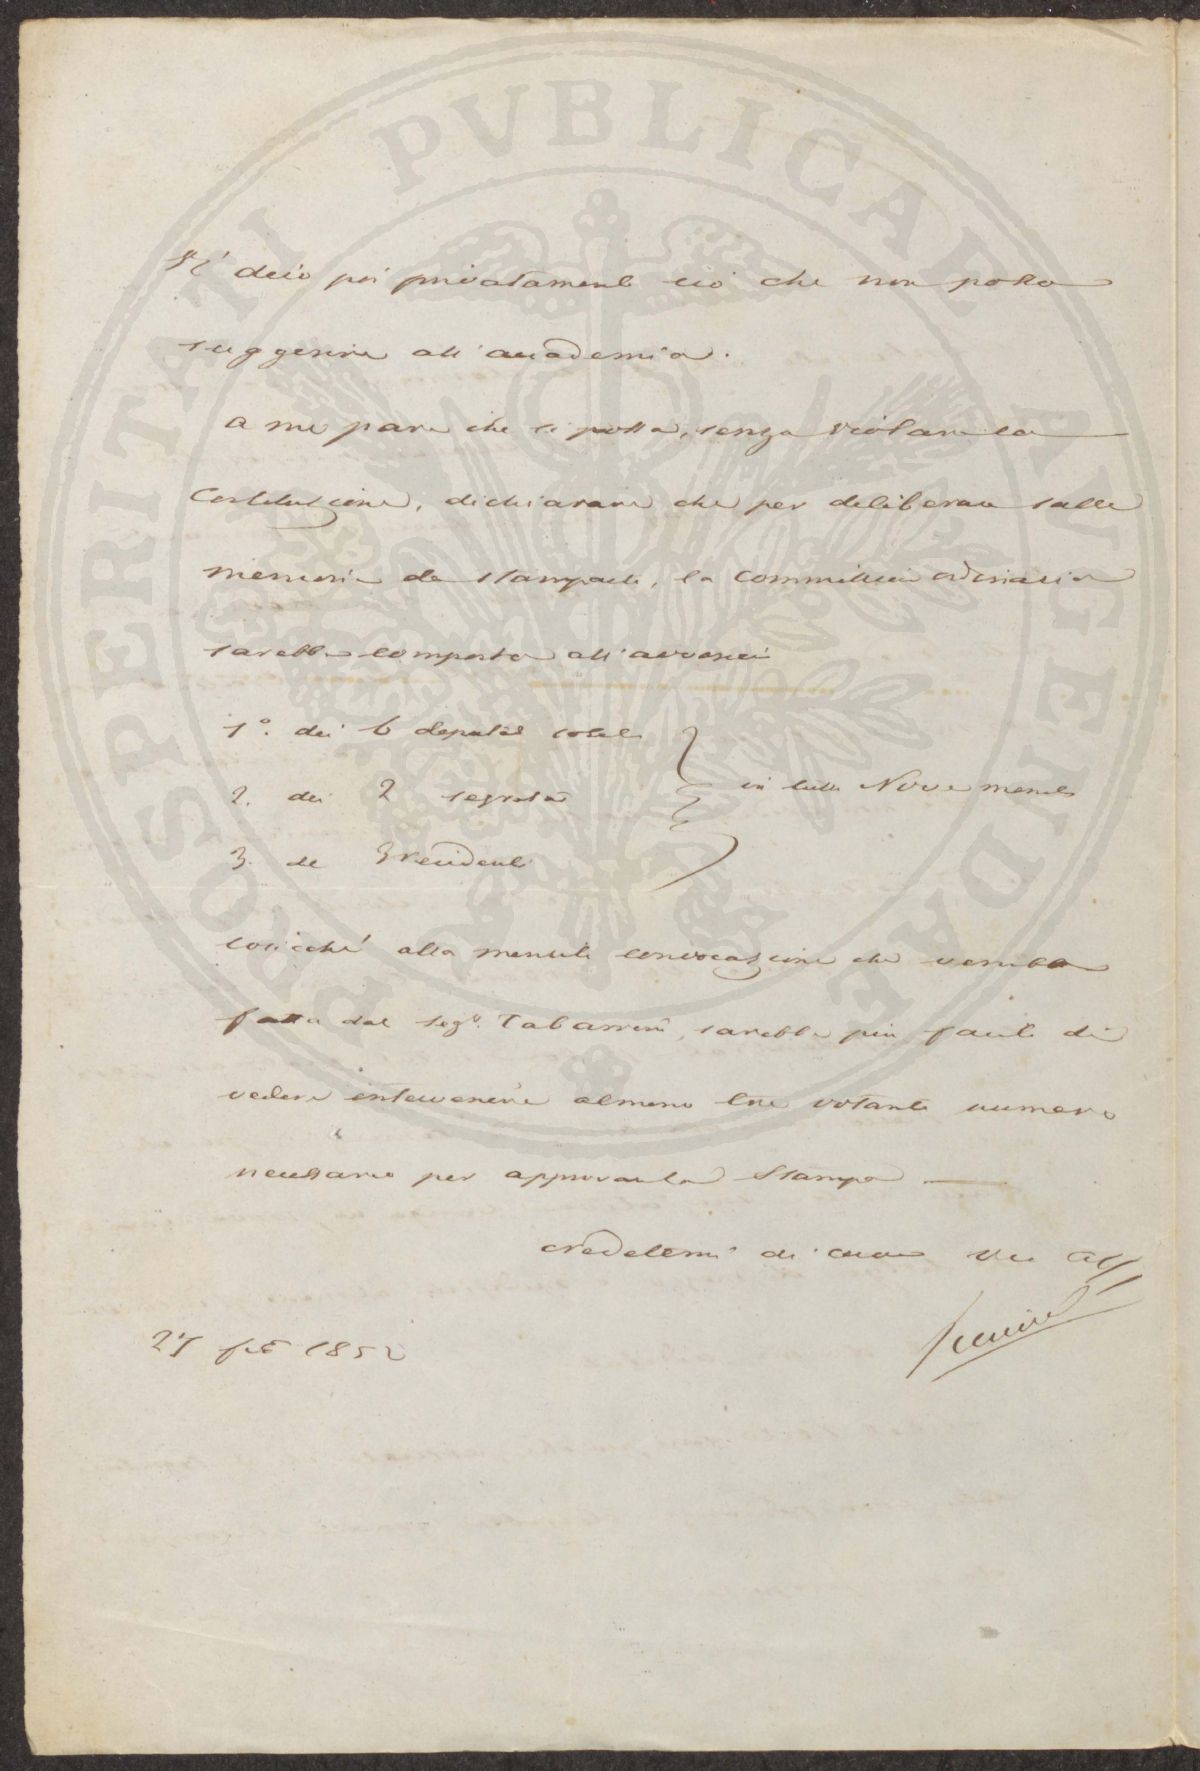 PROSPERITATI PVBLICAE AVGENDAE
Vi dirò poi privatamente ciò che non posso
suggerire all'accademia.
a me pare che si possa, senza violare la
Costituzione, dichiarare che per deliberare sulle
memorie da stamparsi, la commissione ordinaria
sarebbe composta all'avvenire
1º. dei 6 deputati
2. dei 2 segretari
in tutti Nove membri
3. del Presidente
cosicché alla mensile convocazione che verrebbe
fatta dal Segº. Tabarrini, sarebbe più facile di
vedere intervenire almeno tre votanti numero
necessario per approvare la Stampa
credetemi di cuore Vro aff
27 feb 1852